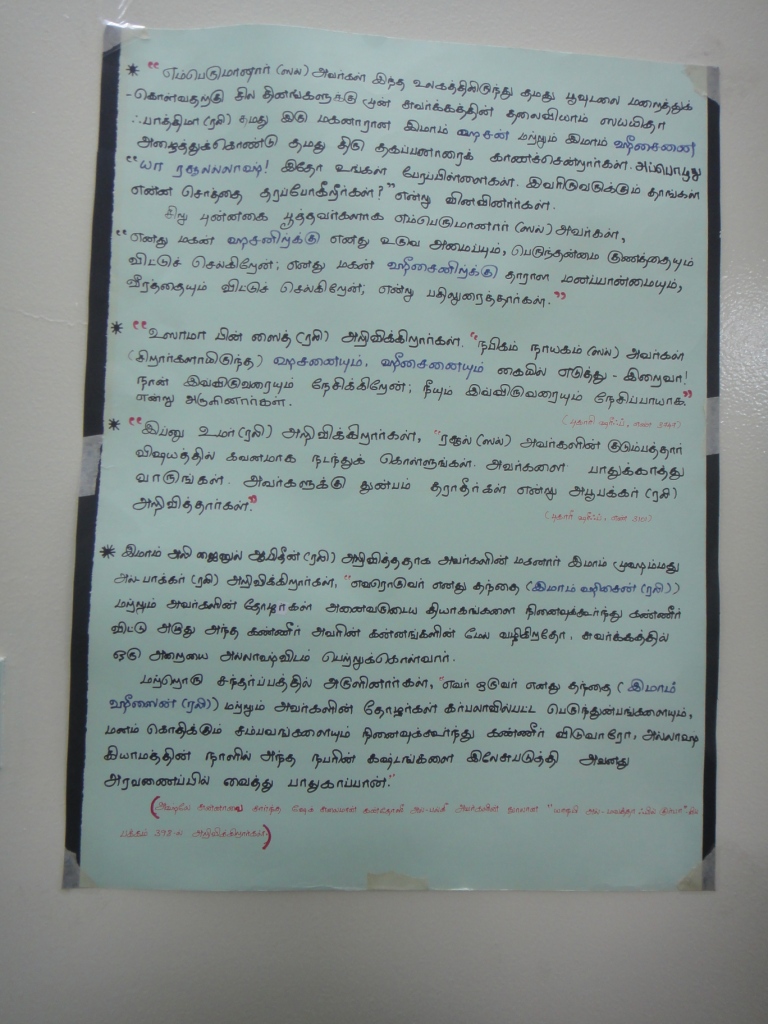 * "எம்பெருமானார் (ஸல்) அவர்கள் இந்த உலகத்திலிருந்து தமது பூவுடலை மறைத்துக்
-கொள்வதற்கு சில தினங்களுக்கு முன் சுவர்க்கத்தின் தலைவியாம் ஸய்யிதா
ஃபாத்திமா (ரலி) தமது இரு மகனாரான இமாம் ஹசன் மற்றும் இமாம் ஹுசைனை
அழைத்துக்கொண்டு தமது திரு தகப்பனாரைக் காணச்சென்றார்கள். அப்பொழுது
"யா ரசூலல்லாஹ்! இதோ உங்கள் பேரப்பிள்ளைகள். இவரிருவருக்கும் தாங்கள்
என்ன சொத்தை தரப்போகிறீர்கள்?" என்று வினவினார்கள்.
சிறு புன்னகை பூத்தவர்களாக எம்பெருமானார் (ஸல்) அவர்கள்,
"எனது மகன் ஹசனிற்க்கு எனது உருவ அமைப்பும், பெருந்தன்மை குணத்தையும்
விட்டுச் செல்கிறேன்; எனது மகன் ஹுசைனிற்க்கு தாராள மனப்பான்மையும்,
வீரத்தையும் விட்டுச் செல்கிறேன்; என்று பதிலுரைத்தார்கள்."
* "உஸாமா பின் ஸைத் (ரலி) அறிவிக்கிறார்கள். "நபிகம் நாயகம் (ஸல்) அவர்கள்
(சிறார்களாயிருந்த) ஹசனையும், ஹுசைனையும் கையில் எடுத்து - இறைவா!
நான் இவ்விருவரையும் நேசிக்கிறேன்; நீயும் இவ்விருவரையும் நேசிப்பாயாக."
என்று அருளினார்கள்.
(புகாரி ஷரீஃப், எண்
* "இப்னு உமர் (ரலி) அறிவிக்கிறார்கள், "ரசூல் (ஸல்) அவர்களின் குடும்பத்தார்
விஷயத்தில் கவனமாக நடந்துக் கொள்ளுங்கள். அவர்களை பாதுகாத்து
வாருங்கள். அவர்களுக்கு துன்பம் தராதீர்கள் என்று அபூபக்கர் (ரலி)
அறிவித்தார்கள்."
(புகாரி ஷரீஃப், எண்
* இமாம் அலி ஜைனுல் ஆபிதீன் (ரலி) அறிவித்ததாக அவர்களின் மகனார் இமாம் முஹம்மது
அல்-பாக்கர் (ரலி) அறிவிக்கிறார்கள், "எவரொருவர் எனது தந்தை (இமாம் ஹுசைன் (ரலி))
மற்றும் அவர்களின் தோழர்கள் அனைவருடைய தியாகங்களை நினைவுக்கூர்ந்து கண்ணீர்
விட்டு அழுது அந்த கண்ணீர் அவரின் கன்னங்களின் மேல் வழிகிறதோ, சுவர்க்கத்தில்
ஒரு அறையை அல்லாஹ்விடம் பெற்றுக்கொள்வார்.
மற்றொரு சந்தர்ப்பத்தில் அருளினார்கள், "எவர் ஒருவர் எனது தந்தை (இமாம்
ஹுஸைன் (ரலி)) மற்றும் அவர்களின் தோழர்கள் கர்பலாவில்பட்ட பெருந்துன்பங்களையும்,
மனம் கொதிக்கும் சம்பவங்களையும் நினைவுக்கூர்ந்து கண்ணீர் விடுவாரோ, அல்லாஹ்
கியாமத்தின் நாளில் அந்த நபரின் கஷ்டங்களை இலேசுபடுத்தி அவனது
அரவணைப்பில் வைத்து பாதுகாப்பான்."
பக்கம் அறிவிக்கிறார்கள்.)